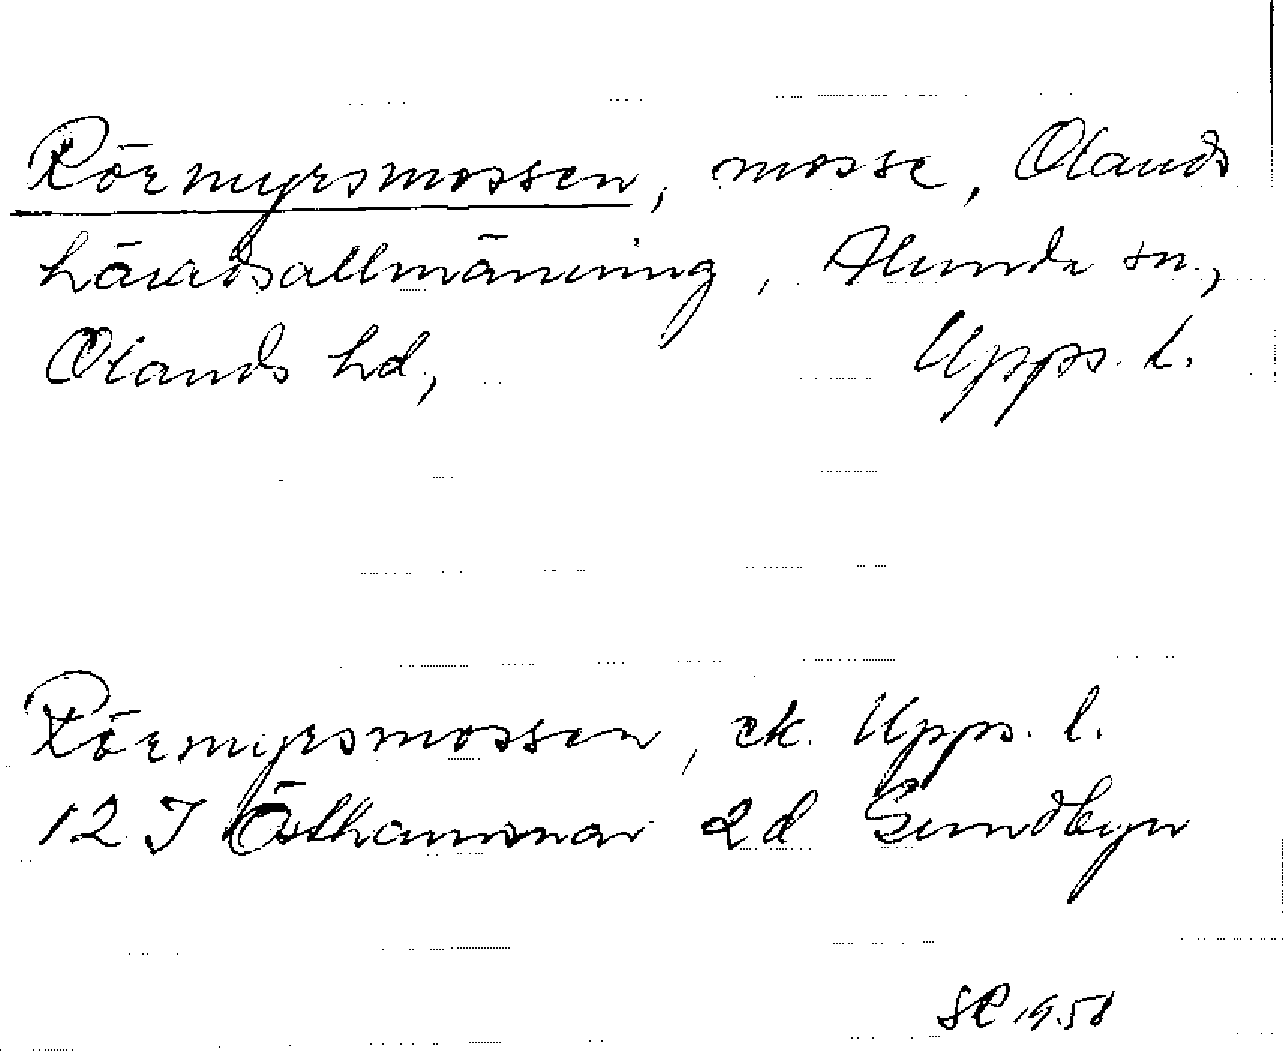 Rörmyrsmossen, mosse, Olands
häradsallmänning, Alunda sn.,
Olands hd, Upps. l.
Rörmyrsmossen, ek. Upps. l.
12 I Östhammar 2d Sundbyn
1958